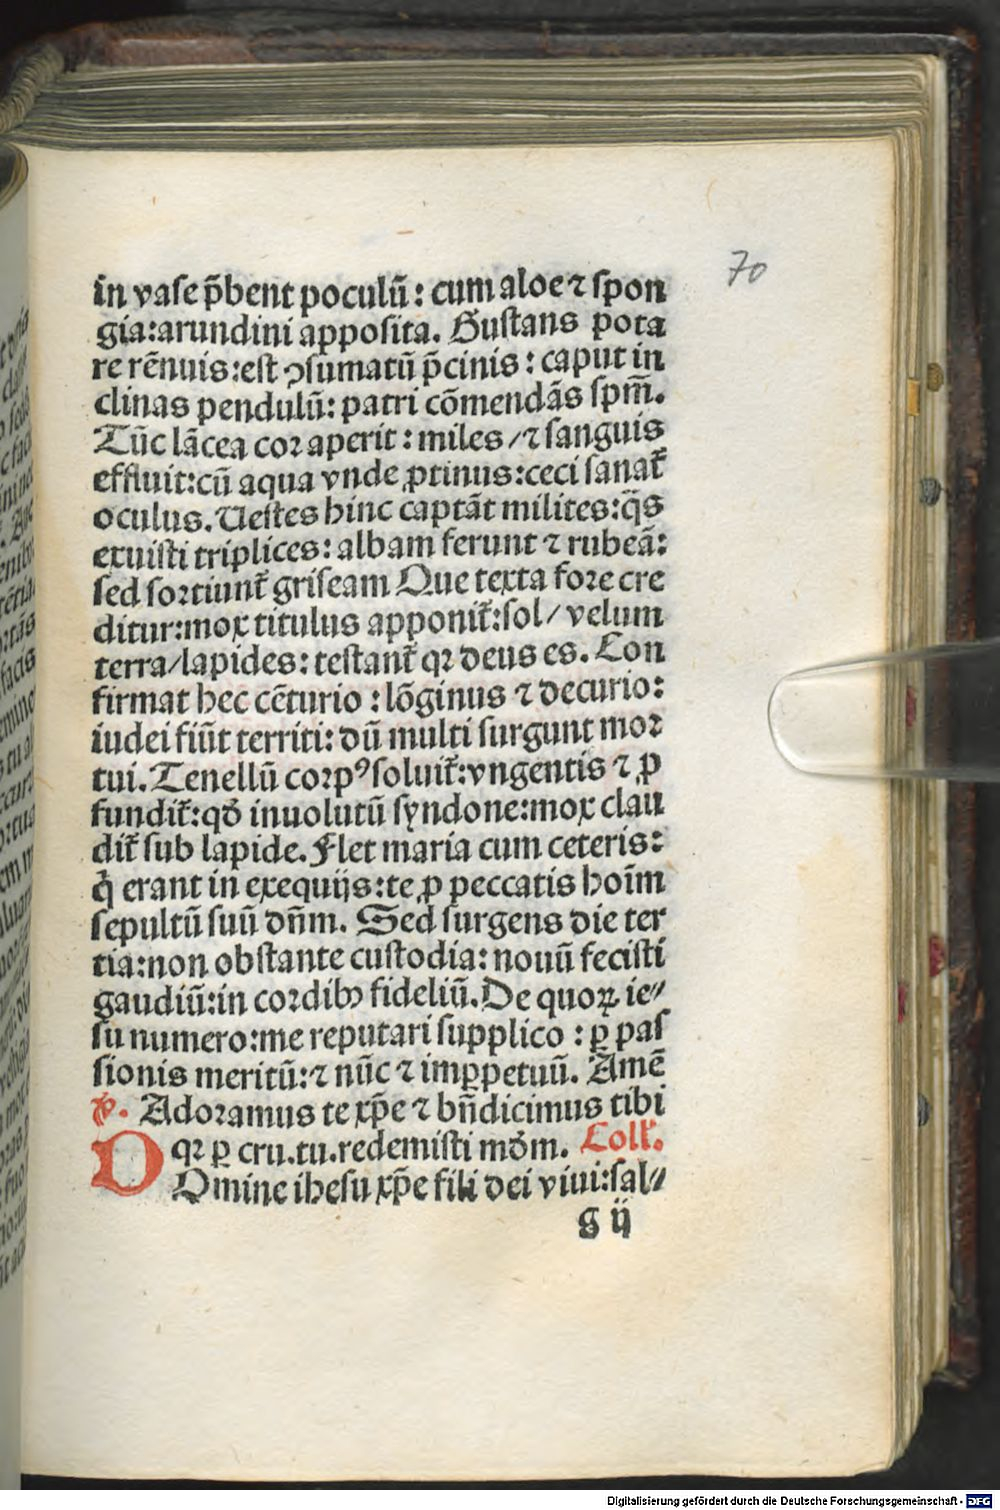 in vase p̄bent poculū: cum aloe ⁊ spon
gia:arundini apposita. Gustans pota
re rēnuis:est ↄsumatū p̄cinis: caput in
clinas pendulū: patri cōmendās spm̄.
Tūc lācea coꝛ aperit: miles/⁊ sanguis
effluit:cū aqua vnde ꝓtinus:ceci sanat᷑
oculus. Uestes hinc captāt milites:q̄s
exuisti triplices: albam ferunt ⁊ rubeā:
sed soꝛtiunt᷑ griseam Que texta foꝛe cre
ditur:mox titulus apponit᷑:sol/ velum
terra/lapides: testant᷑ qꝛ deus es. Con
firmat hec cēturio: lōginus ⁊ decurio:
iudei fiūt territi: dū multi surgunt moꝛ
tui. Tenellū coꝛpꝰ soluit᷑:vngentis ⁊ ꝓ
fundit᷑:qđ inuolutū syndone:mox clau
dit᷑ sub lapide. Flet maria cum ceteris:
q̇ erant in exequijs:te ꝓ peccatis hoīm
sepultū suū dn̄m. Sed surgens die ter
tia:non obstante custodia: nouū fecisti
gaudiū:in coꝛdibꝫ fideliū. De quoꝝ ie⸗
su numero:me reputari supplico: ꝑ pas
sionis meritū:⁊ nūc ⁊ imꝑpetuū. Amē
℣. Adoꝛamus te xp̄e ⁊ bn̄dicimus tibi
qꝛ ꝑ cru.tu.redemisti mđm. Coll᷑.
DOmine ihesu xp̄e fili dei viui:sal⸗
g ij
70
Digitalisierung gefördert durch die Deutsche Forschungsgemeinschaft - DFG